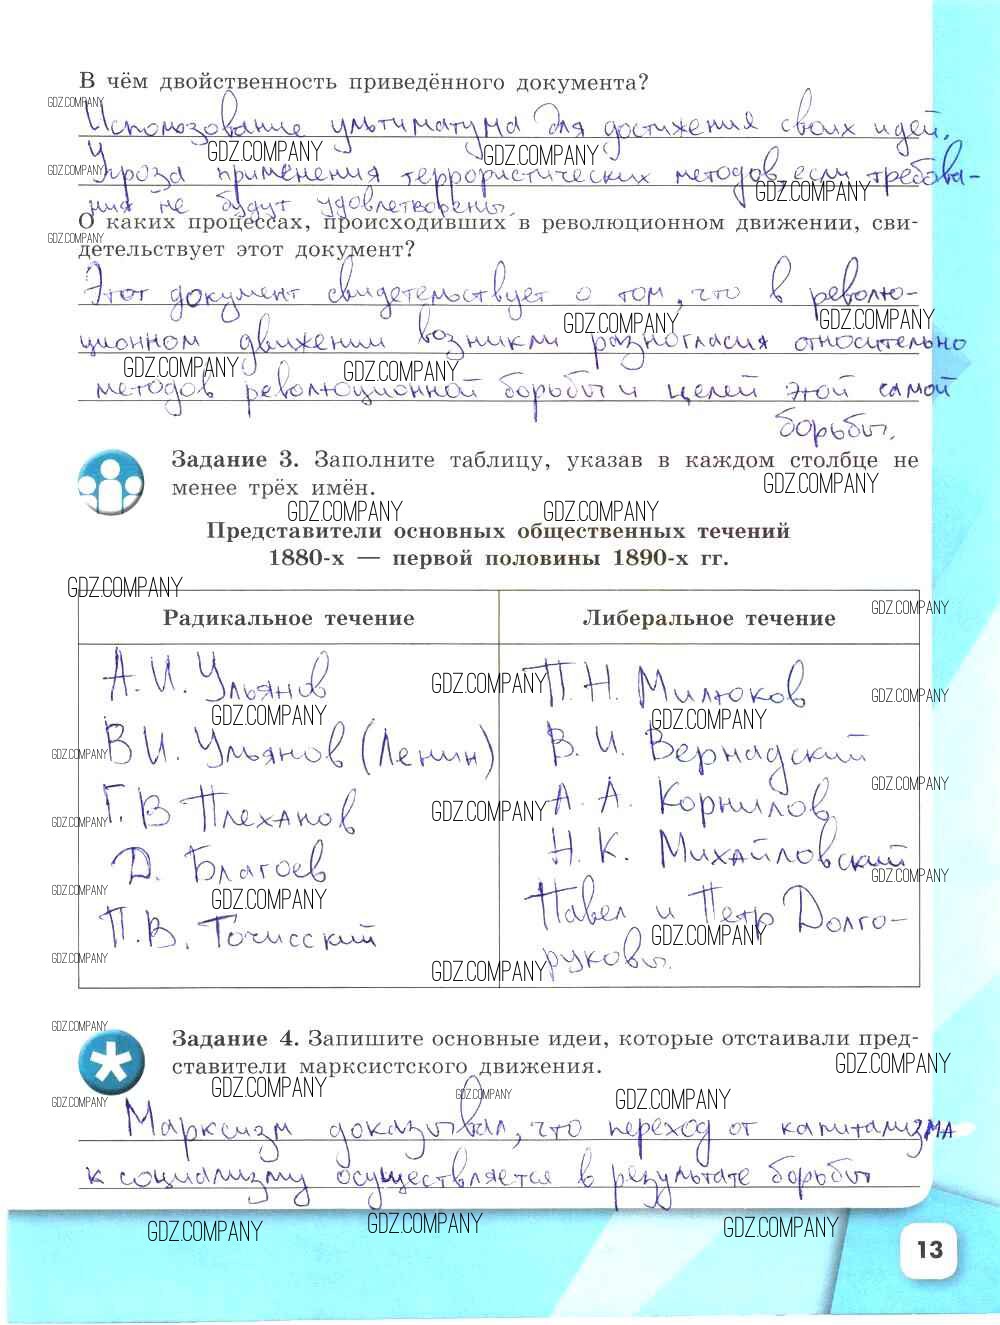 В чём двойственность приведённого документа?
Использование ультиматума для достижения своих идей.
Угроза применения террористических методов если требова-
ния не будут удовлетворены.
О каких процессах, происходивших в революционном движении, сви-
детельствует этот документ?
Этот документ свидетельствует о том, что в револю-
ционном движении возникли разногласия относительно
методов революционной борьбы и целей этой самой
борьбы.
Задание 3. Заполните таблицу, указав в каждом столбце не
менее трёх имён.
Представители основных общественных течений
1880-х — первой половины 1890-х гг.
Радикальное течение
А. И. Ульянов
В И. Ульянов (Ленин)
Г. В Плеханов
Д. Благоев
П. В. Точисский
Либеральное течение
П. Н. Милюков
В. И. Вернадский
А. А. Корнилов
Н. К. Михайловский
Павел и Петр Долго-
руковы.
Задание 4. Запишите основные идеи, которые отстаивали пред-
ставители марксистского движения.
Марксизм доказывал, что переход от капитализма
к социализму осуществляется в результате борьбы
13
GDZ.COMPANY